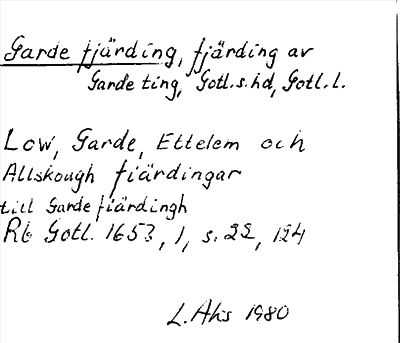 Garde fjärding, fjärding av
Garde ting, Gotl. s. hd, Gotl. l.
Low, Garde, Ettelem och
Allskough fiärdingar
till Garde fiärdingh
Rb Gotl. 1653, 1, s. 22, 124
L. Ahs 1980